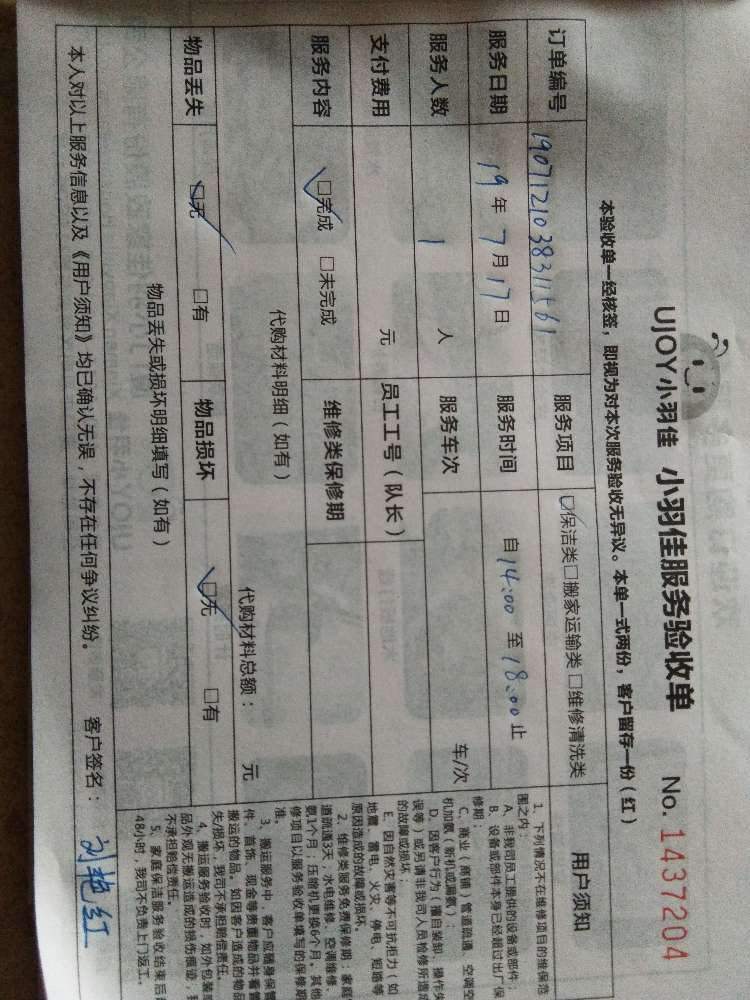 UJOY小羽佳 小羽佳服务验收单 No. 1437204
本验收单一经核签，即视为对本次服务验收无异议。本单一式两份，客户留存一份（红）
订单编号 190712103831 服务项目 □保洁类□搬家运输类□维修清洗类
服务日期 19年7月17日 服务时间 自14:00至18:00止
服务人数 1 人 服务车次 车/次
支付费用 元 员工工号（队长）
服务内容 □完成 □未完成 维修类保修期
代购材料明细（如有） 代购材料总额： 元
物品丢失 □无 □有 物品损坏 □无 □有
物品丢失或损坏明细填写（如有）
本人对以上服务信息以及《用户须知》均已确认无误，不存在任何争议纠纷。 客户签名：刘艳红
用户须知
1、下列情况不在维修项目的维保范
围之内：
A、非我司员工提供的设备或部件；
B、设备或部件本身已经超过出厂保
修期；
C、商业（商铺）管道疏通、空调空
机加氨（新机或漏氨）；
D、因客户行为（擅自装卸、操作失
误等）或另请非我司人员检修所造成
的故障或损坏；
E、因自然灾害等不可抗拒力（如
地震、雷电、火灾、停电、短路等
原因造成的故障或损坏。
2、维修类服务免费保修期：家庭
道疏通3天，水电维修、空调维修、
氨1个月；压缩机更换6个月，其他
修项目以服务验收单填写的保修期
准。
3、搬运服务中，客户应随身保管
件、首饰、现金等贵重物品并看管
搬运的物品，如因客户造成的物品
失/损坏，我司不承担赔偿责任。
4、搬运服务验收时，如外包装
品外观无搬运造成的损伤痕迹，我
不承担赔偿责任。
5、家庭保洁服务验收结束后
48小时，我司不负责上门返工。